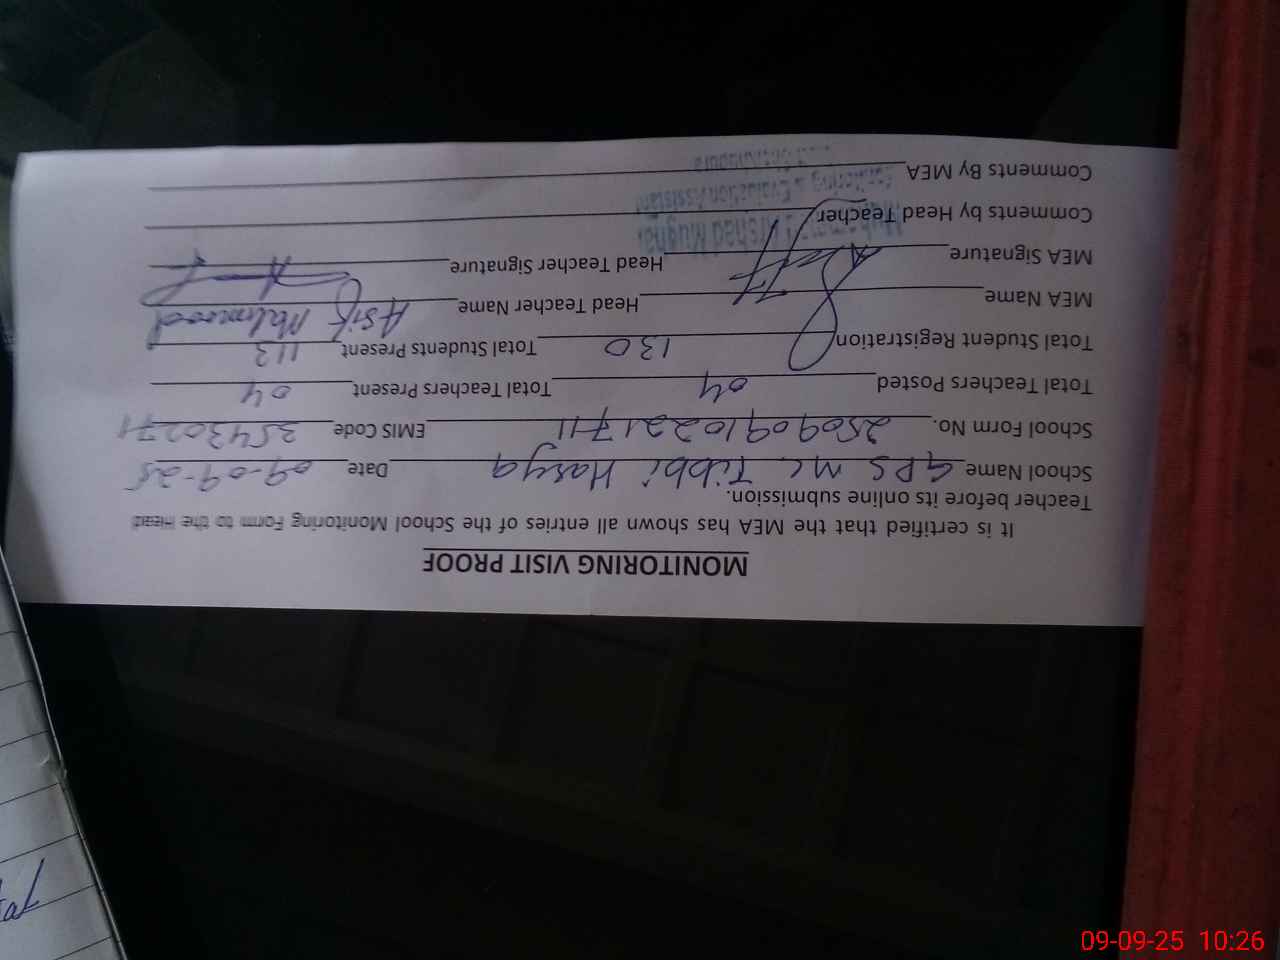 MONITORING VISIT PROOF
It is certified that the MEA has shown all entries of the School Monitoring Form to the Head
Teacher before its online submission.
School Name GPS MC Tibbi Harya Date 09-09-25
School Form No. 25090910221711 EMIS Code 35430271
Total Teachers Posted 04 Total Teachers Present 04
Total Student Registration 130 Total Students Present 113
MEA Name Head Teacher Name Asif Mahmood
MEA Signature Head Teacher Signature
Comments by Head Teacher
Muhammad Arshad Mughal
Monitoring & Evaluation Assistant
Comments By MEA
09-09-25 10:26